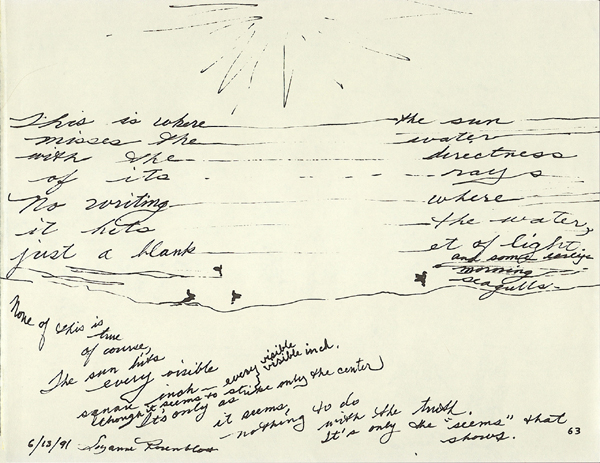 This is where the sun
misses the water
with the directness
of its rays
No writing where
it hits the water,
just a blank et of light
and some
morning
seagulls
None of this is
true
of course,
The sun hits
every visible
square inch - every visible visible inch.
though it seems to strike only the center
It's only as
it seems,
nothing to do
with the truth.
It's only the "seems" that
shows.
6/13/91 Suzanne Rosenblatt 63